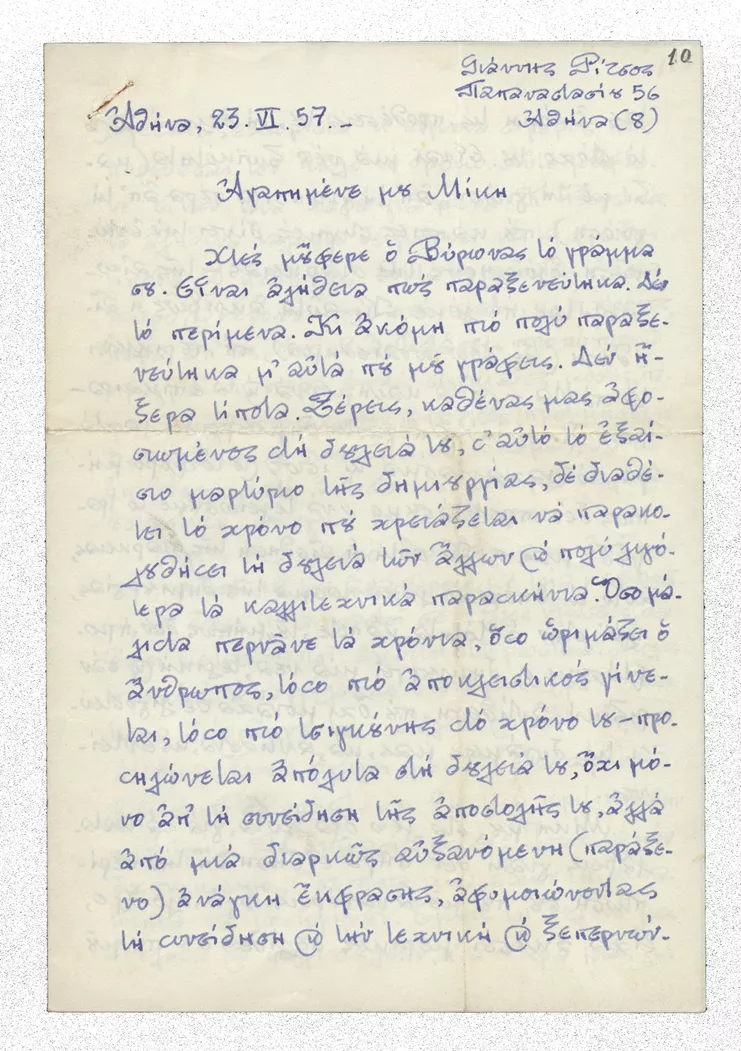 10
Γιάννης Ρίτσος
Παπαναστασίȣ 56
Ἀθήνα (8)
Ἀθήνα, 23. VI. 57.–
Ἀγαπημένε μȣ Μίκη
Χτές μοὔφερε ὁ Βύρωνας τό γράμμα
σȣ. Εἶναι ἀλήθεια πώς παραξενεύτηκα. Δέν
τό περίμενα. Κι ἀκόμη πιό πολύ παραξε-
νεύτηκα μ' αὐτά πȣ μȣ γράφεις. Δέν ἤ-
ξερα τίποτα. Ξέρεις, καθένας μας ἀφο-
σιωμένος στή δȣλειά τȣ, σ' αὐτό τό ἐξαί-
σιο μαρτύριο τῆς δημιȣργίας, δέ διαθέ-
τει τό χρόνο πȣ χρειάζεται νά παρακο-
λȣθήσει τή δȣλειά τῶν ἄλλων ϗ πολύ λιγό-
τερα τά καλλιτεχνικά παρασκήνια. Ὅσο μά-
λιστα περνᾶνε τά χρόνια, ὅσο ὡριμάζει ὁ
ἄνθρωπος, τόσο πιό ἀποκλειστικός γίνε-
ται, τόσο πιό τσιγκȣ́νης στό χρόνο τȣ – προ-
σηλώνεται ἀπόλυτα στή δȣλειά τȣ, ὄχι μό-
νο ἀπ' τή συνείδηση τῆς ἀποστολῆς τȣ, ἀλλά
ἀπό μιά διαρκῶς αὐξανόμενη (παράξε-
νο) ἀνάγκη ἔκφρασης, ἀφομοιώνοντας
τή συνείδηση ϗ τήν τεχνική ϗ ξεπερνών-